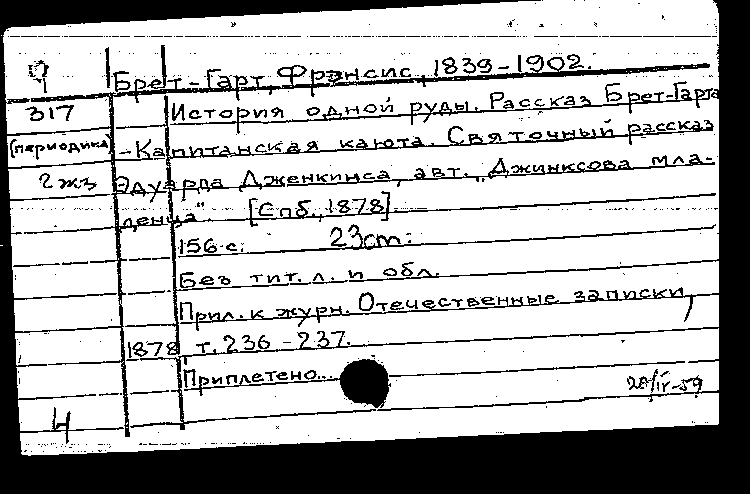 Брет-Гарт, Фрэнсис, 1839-1902.
317 История одной руды. Рассказ Брет-Гарта
(периодика) -Капитанская каюта. Святочный рассказ
2 жз Эдуарда Дженкинса, авт. "Джинксова мла-
денца". [Спб., 1878].
156 с. 23cm.
Без тит. л. и обл.
Прил. к журн. Отечественные записки,
1878 т. 236-237.
Приплетено...
28/IV-59
Ч